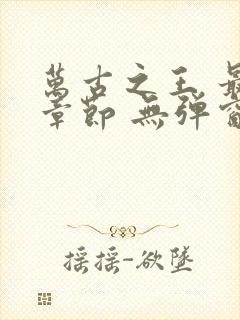 萬古之王 最
章節 無彈窗
搖搖-欲墜